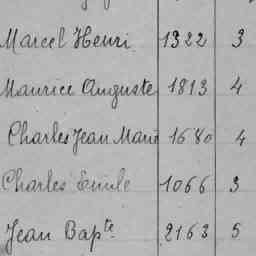 Marcel Henri 1322 3
Maurice Auguste 1813 4
Charles Jean Marie 1680 4
Charles Emile 1066 3
Jean Bapte 2163 5